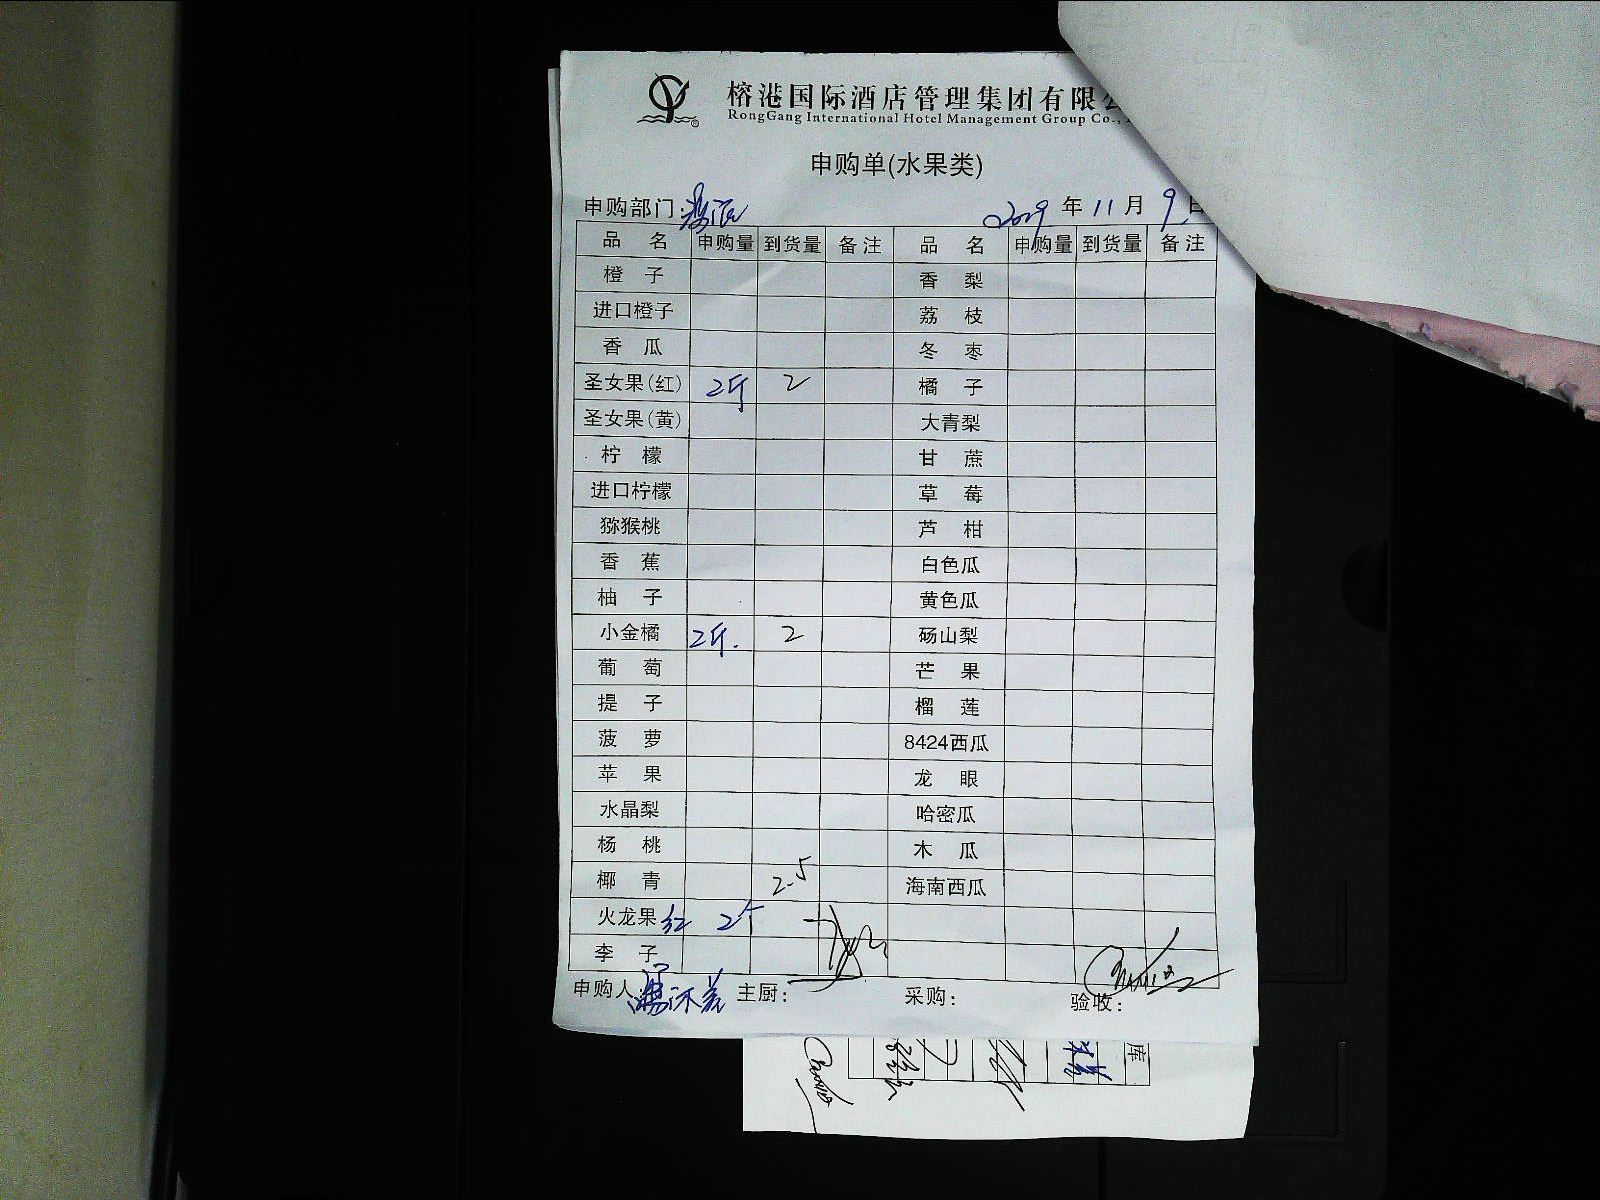 榕港国际酒店管理集团有限
RongGang International Hotel Management Group Co.,
申购单(水果类)
申购部门: 2019 年 11 月 9 日
品 名 申购量 到货量 备注 品 名 申购量 到货量 备注
橙 子 香 梨
进口橙子 荔 枝
香 瓜 冬 枣
圣女果(红) 2斤 2 橘 子
圣女果(黄) 大青梨
柠 檬 甘 蔗
进口柠檬 草 莓
猕猴桃 芦 柑
香 蕉 白色瓜
柚 子 黄色瓜
小金橘 2斤. 2 砀山梨
葡 萄 芒 果
提 子 榴 莲
菠 萝 8424西瓜
苹 果 龙 眼
水晶梨 哈密瓜
杨 桃 木 瓜
椰 青 2.5 海南西瓜
火龙果 红 2斤
李 子
申购人: 主厨: 采购: 验收:
库